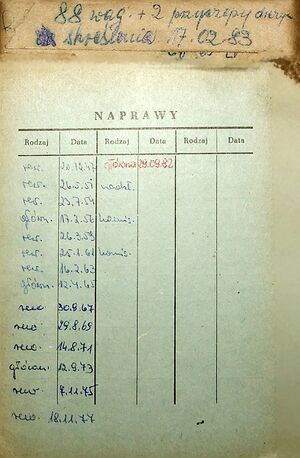 88 wag. + 2 przyczepy
skreślenia 17.02.83
NAPRAWY
Rodzaj Data Rodzaj Data Rodzaj Data
rew. 20.12.47 główna 29.09.82
rew. 26.5.51 nadzl.
rew. 23.7.54
główn. 17.2.56 komis.
rew. 26.3.59
rew. 25.1.62 komis.
rew. 16.2.63
główn. 12.4.65
rew. 30.9.67
rew. 29.8.69
rew. 14.8.71
główn. 12.9.73
rew. 7.11.75
rew. 18.11.77